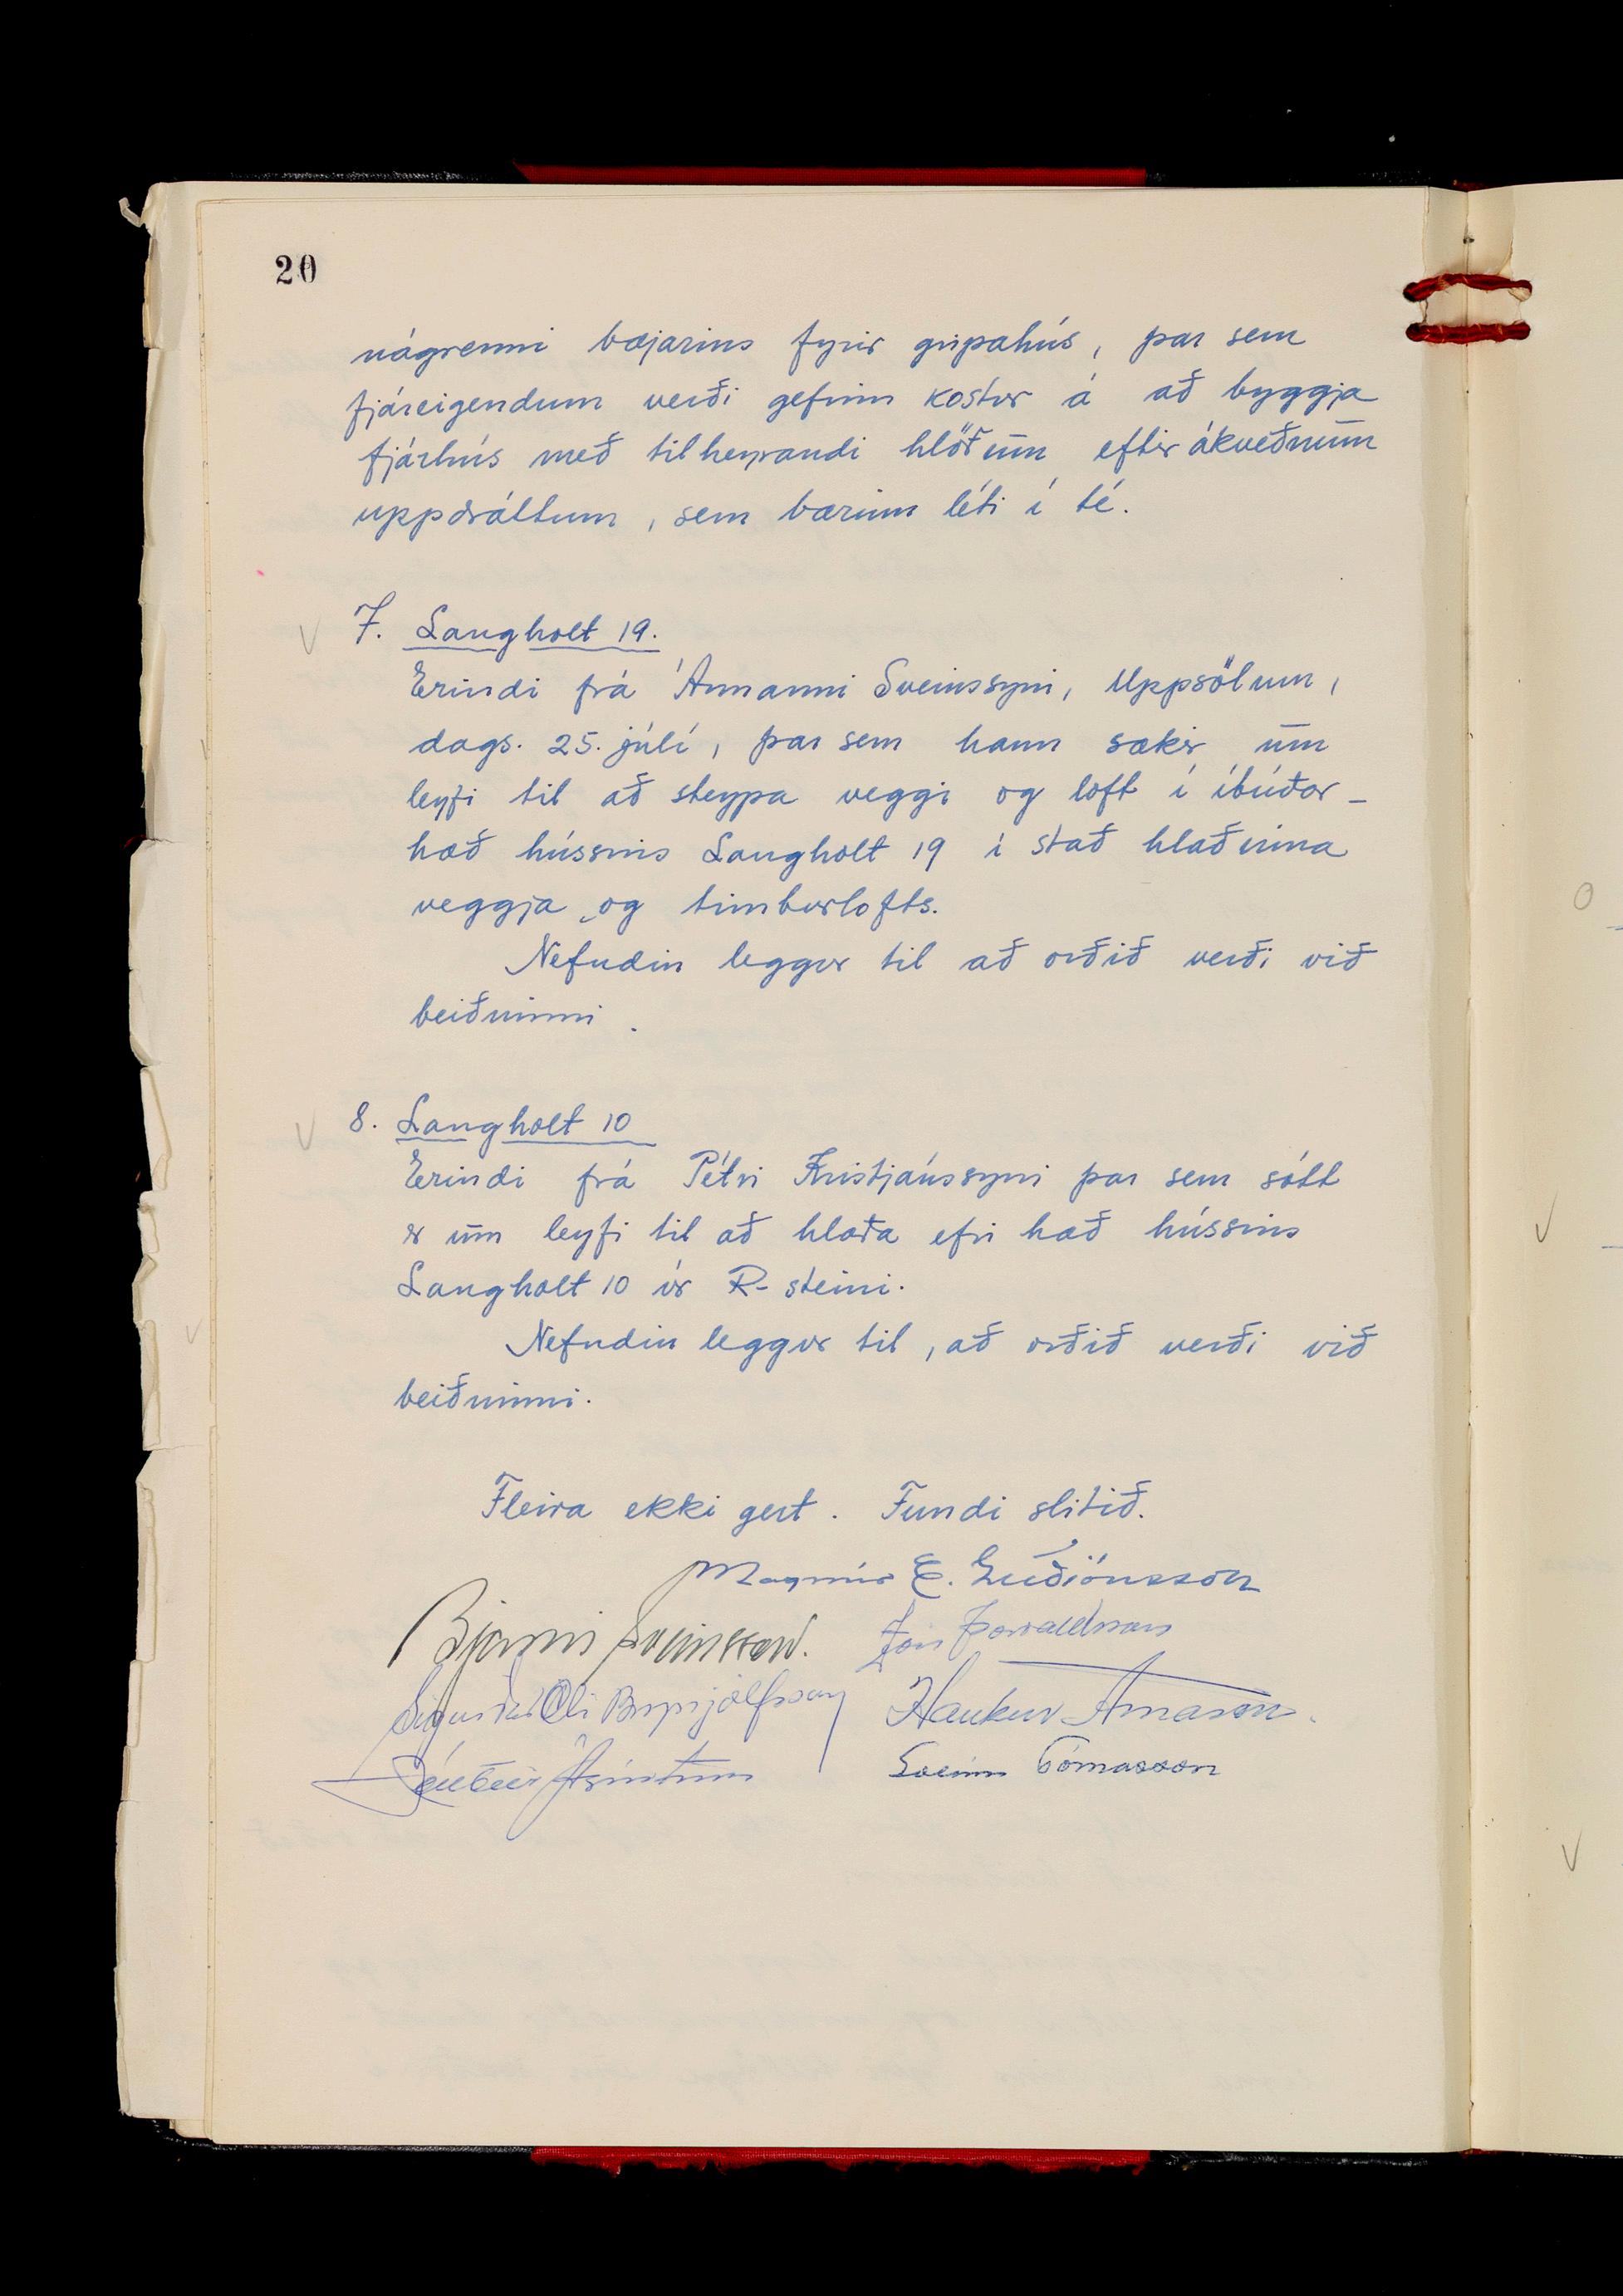 20
nágrenni bæjarins fyrir gripahús, þar sem
fjáreigendum verði gefinn kostur á að byggja
fjárhús með tilheyrandi hlöðum eftir ákveðnum
uppdráttum, sem bærinn léti í té.
7. Langholt 19.
Erindi frá Ármanni Sveinssyni, Uppsölum,
dags. 25. júlí, þar sem hann sækir um
leyfi til að steypa veggi og loft í íbúðar-
hæð hússins Langholt 19 í stað hlaðinna
veggja og timburlofts.
Nefndin leggur til að orðið verði við
beiðninni.
8. Langholt 10
Erindi frá Pétri Kristjánssyni þar sem sótt
er um leyfi til að hlaða efri hæð hússins
Langholt 10 úr R-steini.
Nefndin leggur til, að orðið verði við
beiðninni.
Fleira ekki gert. Fundi slitið.
Magnús E. Guðjónsson
Bjarni Sveinsson. Jón Þorvaldsson
Sigurður Óli Brynjólfsson Haukur Árnason.
Sveinn Tómasson